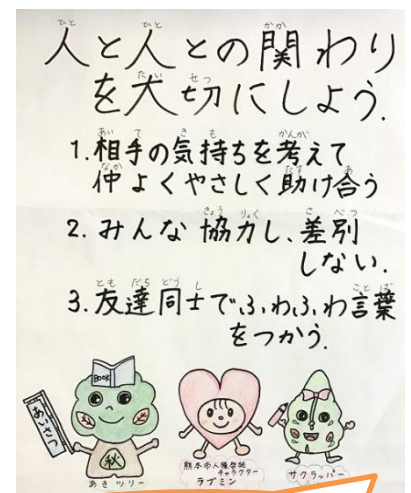 人と人との関わり
を大切にしよう.
1.相手の気持ちを考えて
仲よくやさしく助け合う
2.みんな協力し、差別
しない.
3.友達同士でふわふわ言葉
をつかう.
BOOK
あいさつ
秋
あきツリー
熊本市人権啓発
キャラクター
ラブミン
サクラッパー